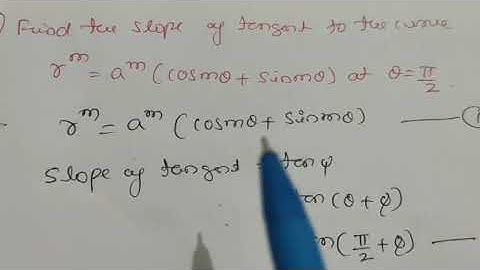 ) Find the slope of tangent to the curve
r^m = a^m (cosmθ + sinmθ) at θ = π/2.
r^m = a^m (cosmθ + sinmθ) —
slope of tangent = tan ψ
(θ + φ)
(π/2 + φ) —